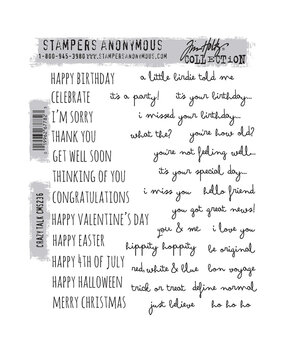 STAMPERS ANONYMOUS
1-800-945-3980
Tim Holtz
COLLECTION
HAPPY BIRTHDAY
a little birdie told me
CELEBRATE
it's a party!
it's your birthday...
I'M SORRY
i missed your birthday...
THANK YOU
what the?
you're how old?
GET WELL SOON
you're not feeling well...
THINKING OF YOU
it's your special day...
CONGRATULATIONS
i miss you
hello friend
you got great news!
HAPPY VALENTINE'S DAY
you & me
i love you
HAPPY EASTER
hippity hoppity
be original
HAPPY 4TH OF JULY
red white & blue
bon voyage
HAPPY HALLOWEEN
trick or treat
define normal
MERRY CHRISTMAS
just believe
ho ho ho
CRAZY TALK CMS236